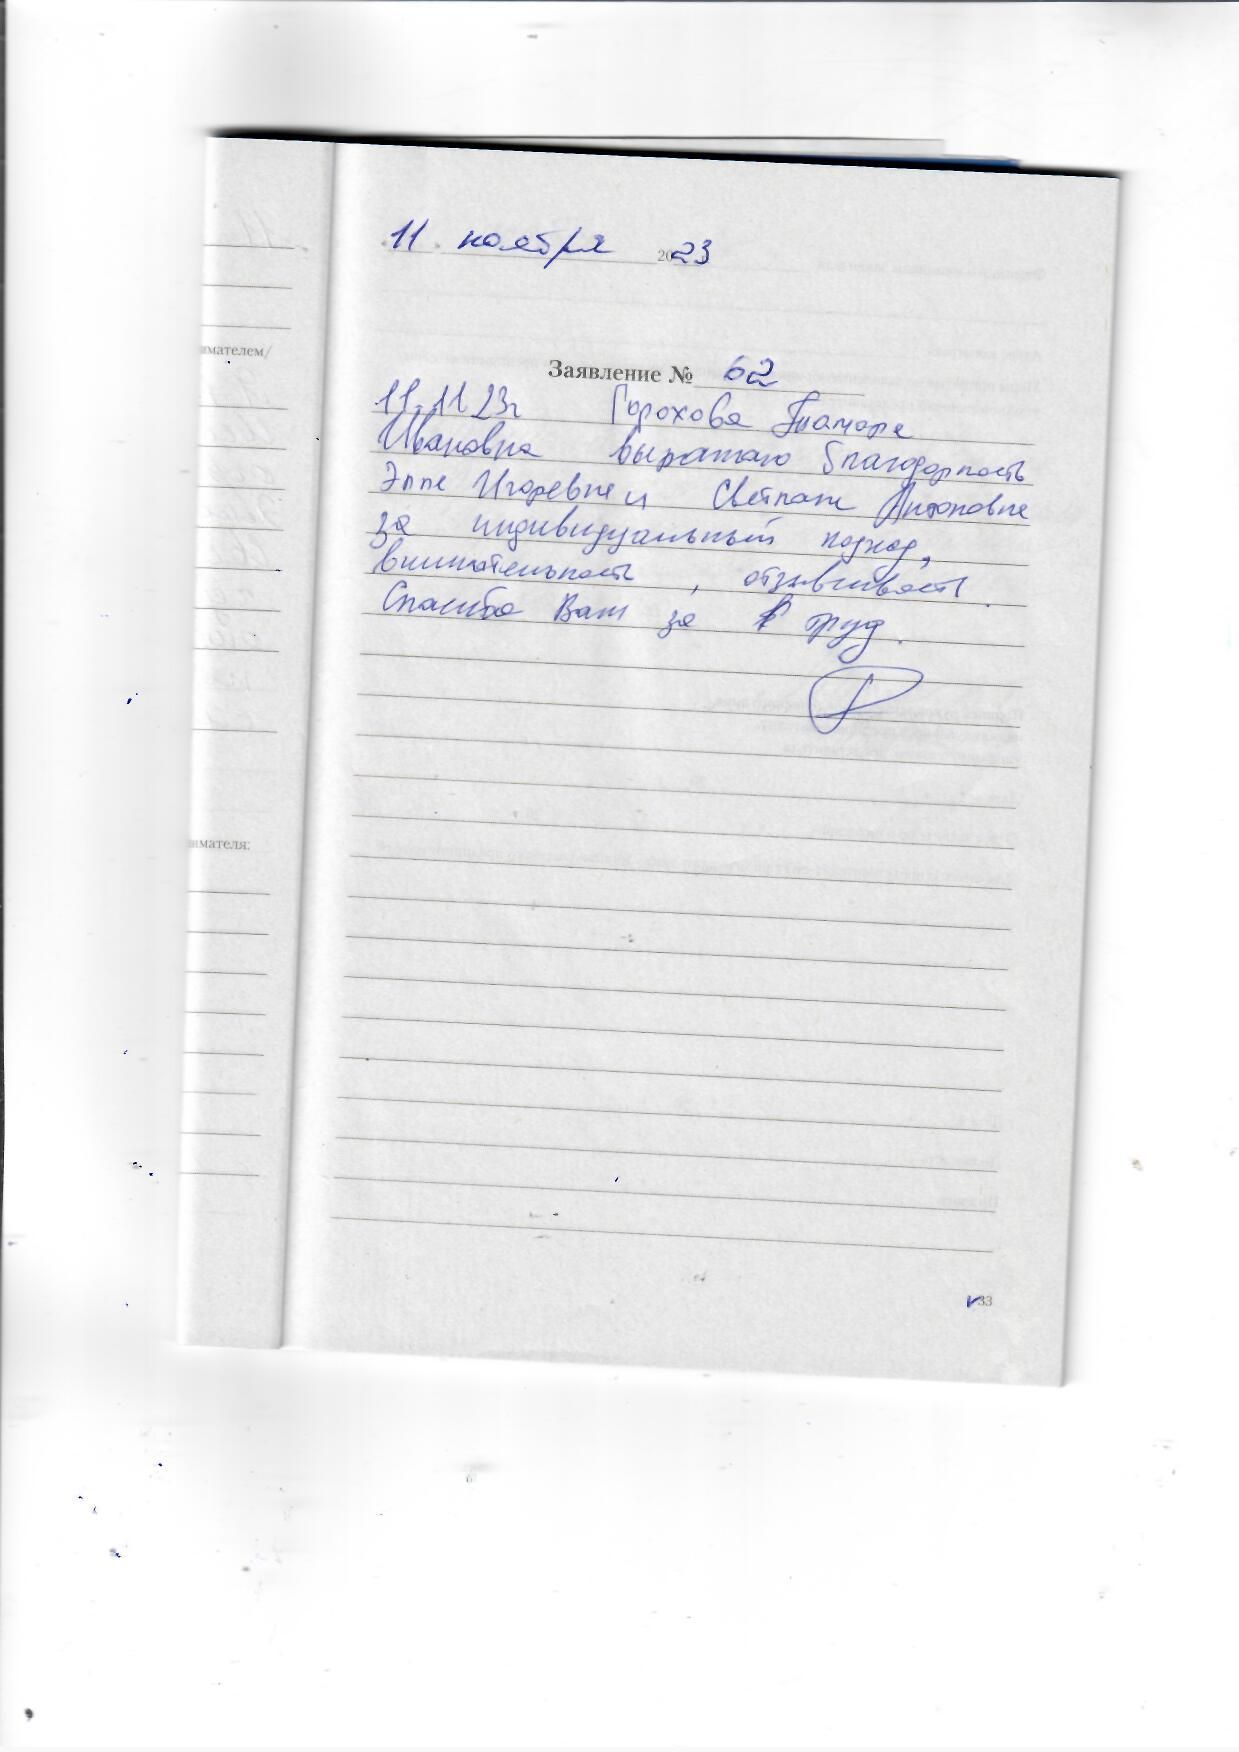 11 ноября 2023
имателем/
Заявление № 62
11.11.23г Горохова Тамара
Ивановна выражаю благодарность
Элле Игоревне и Светлане Антоновне
за индивидуальный подход,
внимательность, отзывчивость.
Спасибо Вам за труд.
имателя:
33